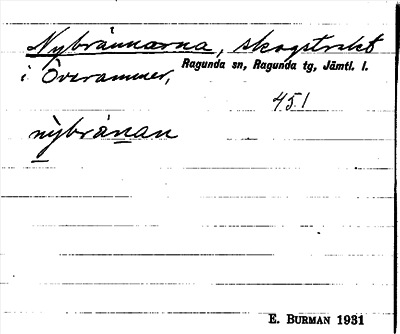 Nybrännorna, skogstrakt
i Överammer, Ragunda sn, Ragunda tg, Jämtl. l.
451
nybränan
E. BURMAN 1931